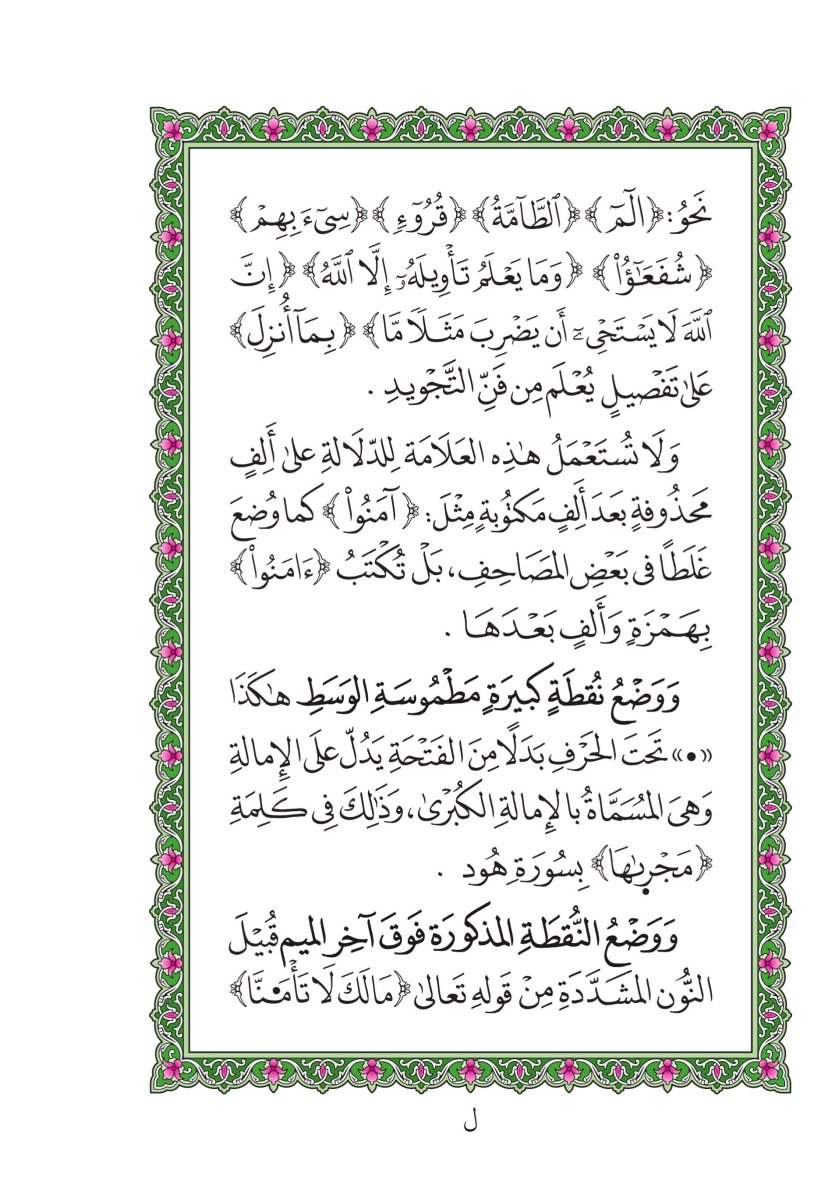 نَحْوُ: ﴿الٓمٓ﴾ ﴿ٱلطَّآمَّةُ﴾ ﴿قُرُوٓءٍ﴾ ﴿سِيٓءَ بِهِمْ﴾
﴿شُفَعَٰٓؤُا۟﴾ ﴿وَمَا يَعْلَمُ تَأْوِيلَهُۥٓ إِلَّا ٱللَّهُ﴾ ﴿إِنَّ
ٱللَّهَ لَا يَسْتَحْيِۦٓ أَن يَضْرِبَ مَثَلًا مَّا﴾ ﴿بِمَآ أُنزِلَ﴾
عَلَىٰ تَفْصِيلٍ يُعْلَم مِن فَنِّ التَّجْوِيدِ .
وَلَا تُسْتَعْمَلُ هَٰذِه العَلَامَة لِلدّلَالةِ علىٰ أَلِفٍ
مَحْذُوفةٍ بَعَدَ أَلِفٍ مَكتُوبةٍ مِثْلَ: ﴿آمَنُوا۟﴾ كما وُضعَ
غَلَطًا فى بَعْضِ المصَاحِفِ، بَلْ تُكْتَبُ ﴿ءَامَنُوا۟﴾
بِهَمْزَةٍ وَأَلفٍ بَعْدَهَا .
وَوَضْعُ نُقطَةٍ كبيرَةٍ مَطْمُوسَةِ الوَسَطِ هٰكَذَا
«•» تَحَتَ الحَرْفِ بَدَلًا مِنَ الفَتْحَةِ يَدُلّ علَى الإِمالةِ
وَهىَ المُسَمَّاةُ بالإمالةِ الكُبْرىٰ، وَذَٰلِكَ فِى كَلِمَةِ
﴿مَجْر۪ىٰهَا﴾ بِسُورَةِ هُود .
وَوَضْعُ النُّقطَةِ المذكورَة فَوقَ آخِر الميم قُبَيْلَ
النُّون المشَدَّدَةِ مِنْ قَولهِ تَعالىٰ ﴿مَا لَكَ لَا تَأْمَ۬نَّا﴾
ل